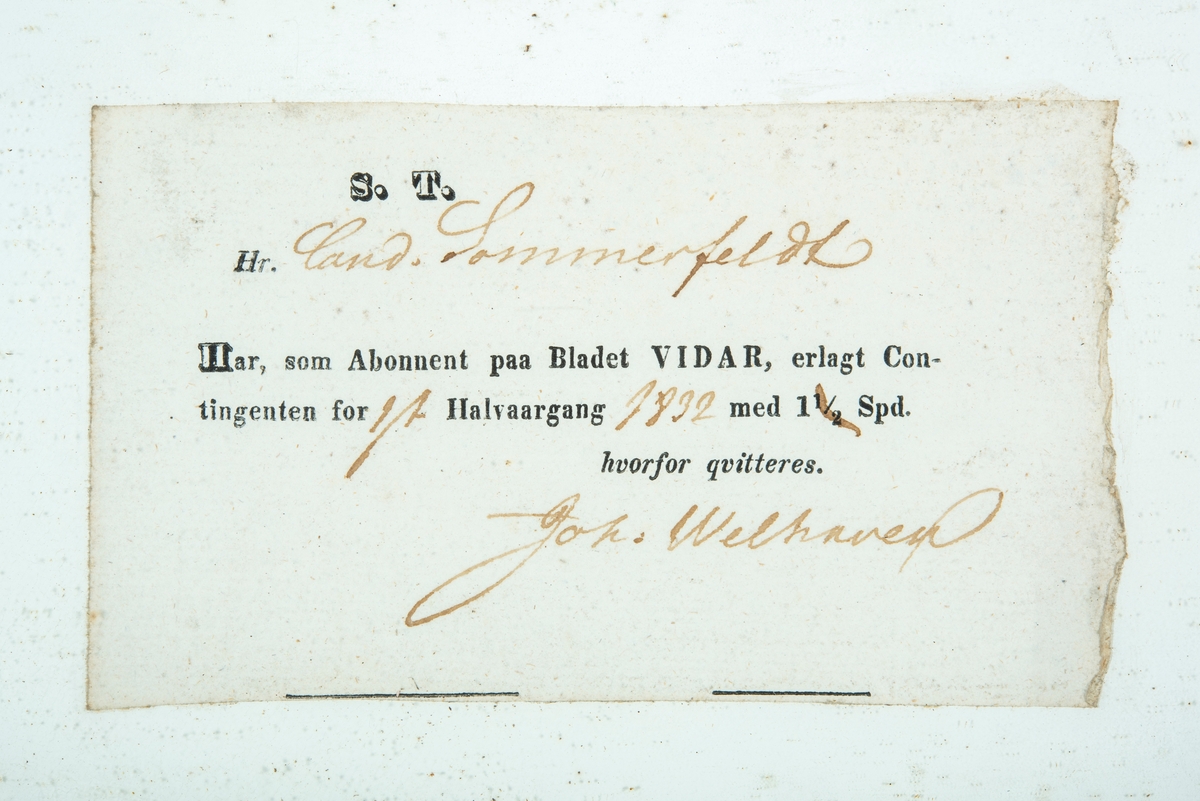 S. T.
Hr. Cand. Sommerfeldt
Har, som Abonnent paa Bladet VIDAR, erlagt Con-
tingenten for 1st Halvaargang 1832 med 1½ Spd.
hvorfor qvitteres.
Joh. Welhaven